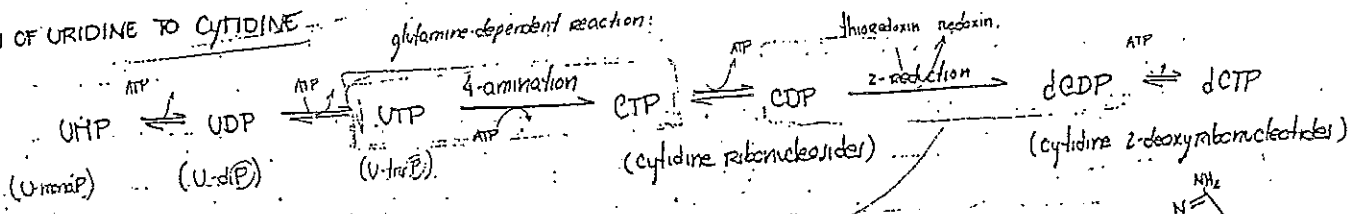 N OF URIDINE TO CYTIDINE
glutamine-dependent reaction:
thioredoxin redoxin.
ATP ATP 4-amination ATP 2-reduction ATP
UMP UDP UTP CTP CDP dCDP dCTP
ATP
(U-monoP) (U-diP) (U-triP) (cytidine ribonucleosides) (cytidine 2-deoxyribonucleotides)
NH2
N